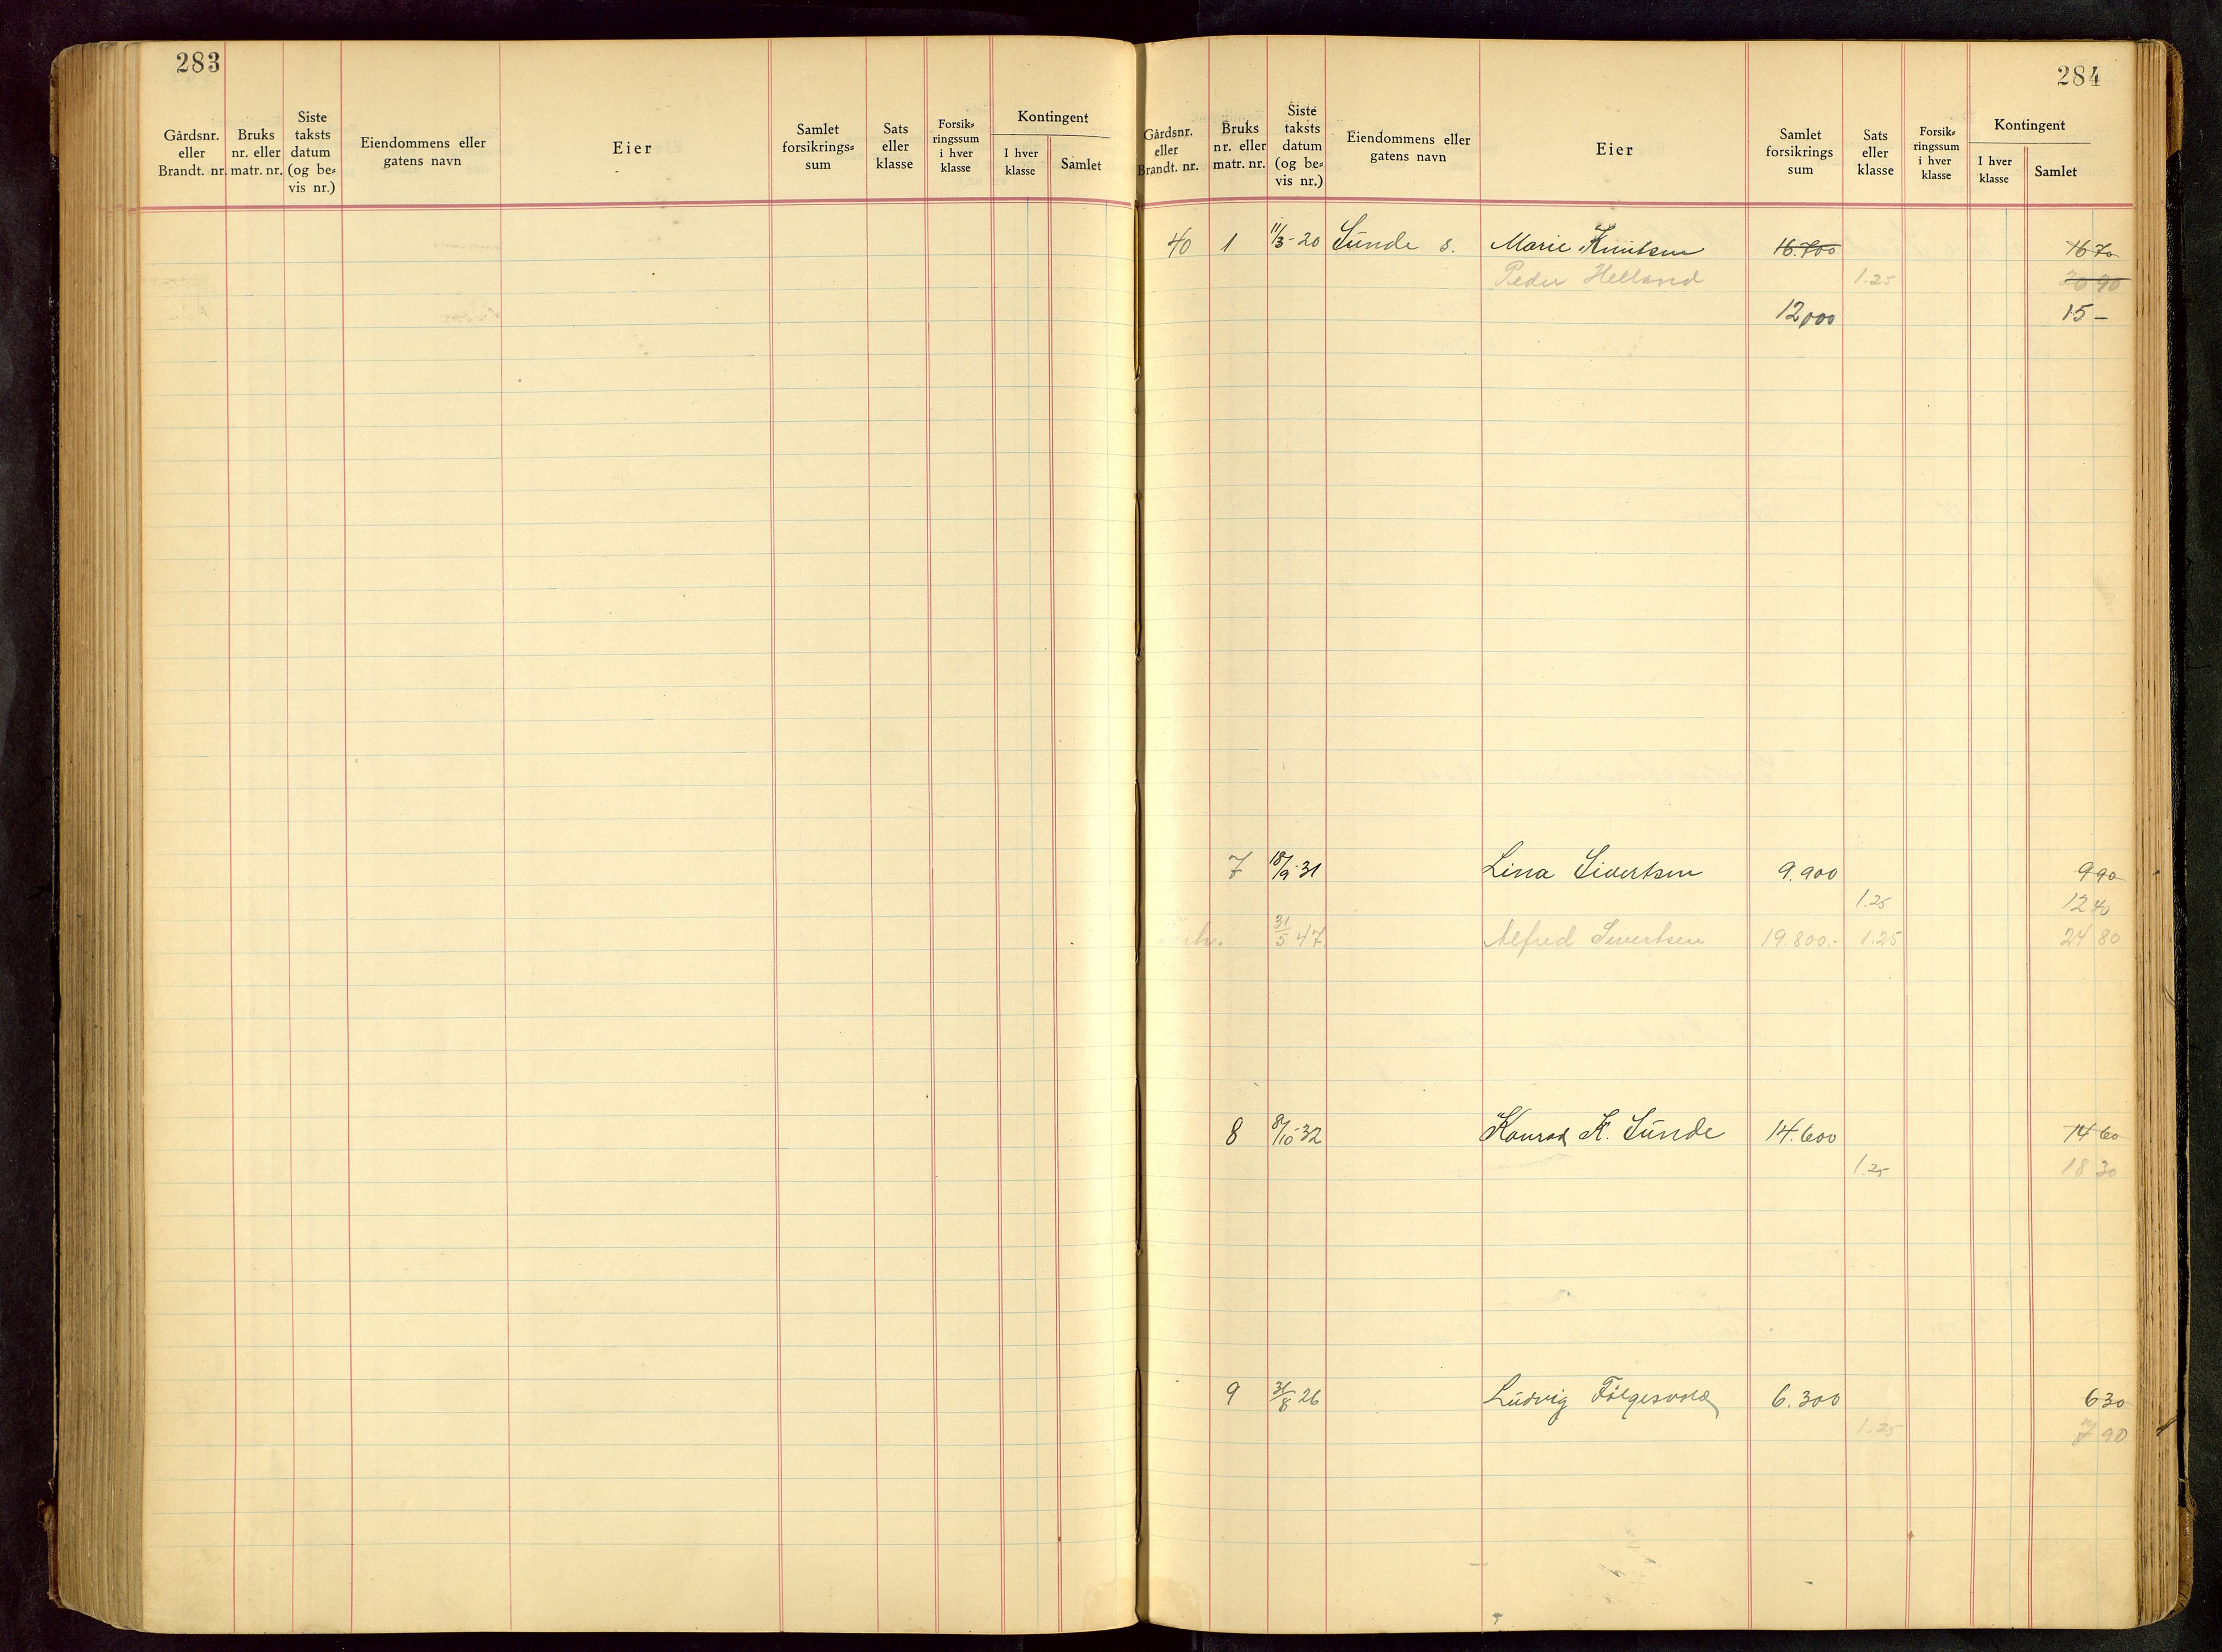 283
Gårdsnr. eller Brandt. nr. Bruks nr. eller matr. nr. Siste taksts datum (og be= vis nr.) Eiendommens eller gatens navn Eier Samlet forsikrings= sum Sats eller klasse Forsik= ringssum i hver klasse Kontingent I hver klasse Samlet
284
Gårdsnr. eller Brandt. nr. Bruks nr. eller matr. nr. Siste taksts datum (og be= vis nr.) Eiendommens eller gatens navn Eier Samlet forsikrings sum Sats eller klasse Forsik= ringssum i hver klasse Kontingent I hver klasse Samlet
40 1 11/3-20 Sunde s. Marie Knutsen 16.700 16 70
Peder Helland 1.25 90
12,000 15 -
7 18/9-31 Lina Sivertsen 9.900 9 90
1.25 12 40
31/5 47 Alfred Sivertsen 19.800.- 1.25 24 80
8 8/10-32 Konrad K. Sunde 14.600 14 60
1.25 18 30
9 31/8 26 Ludvig 6.300 6 30
1.25 7 90